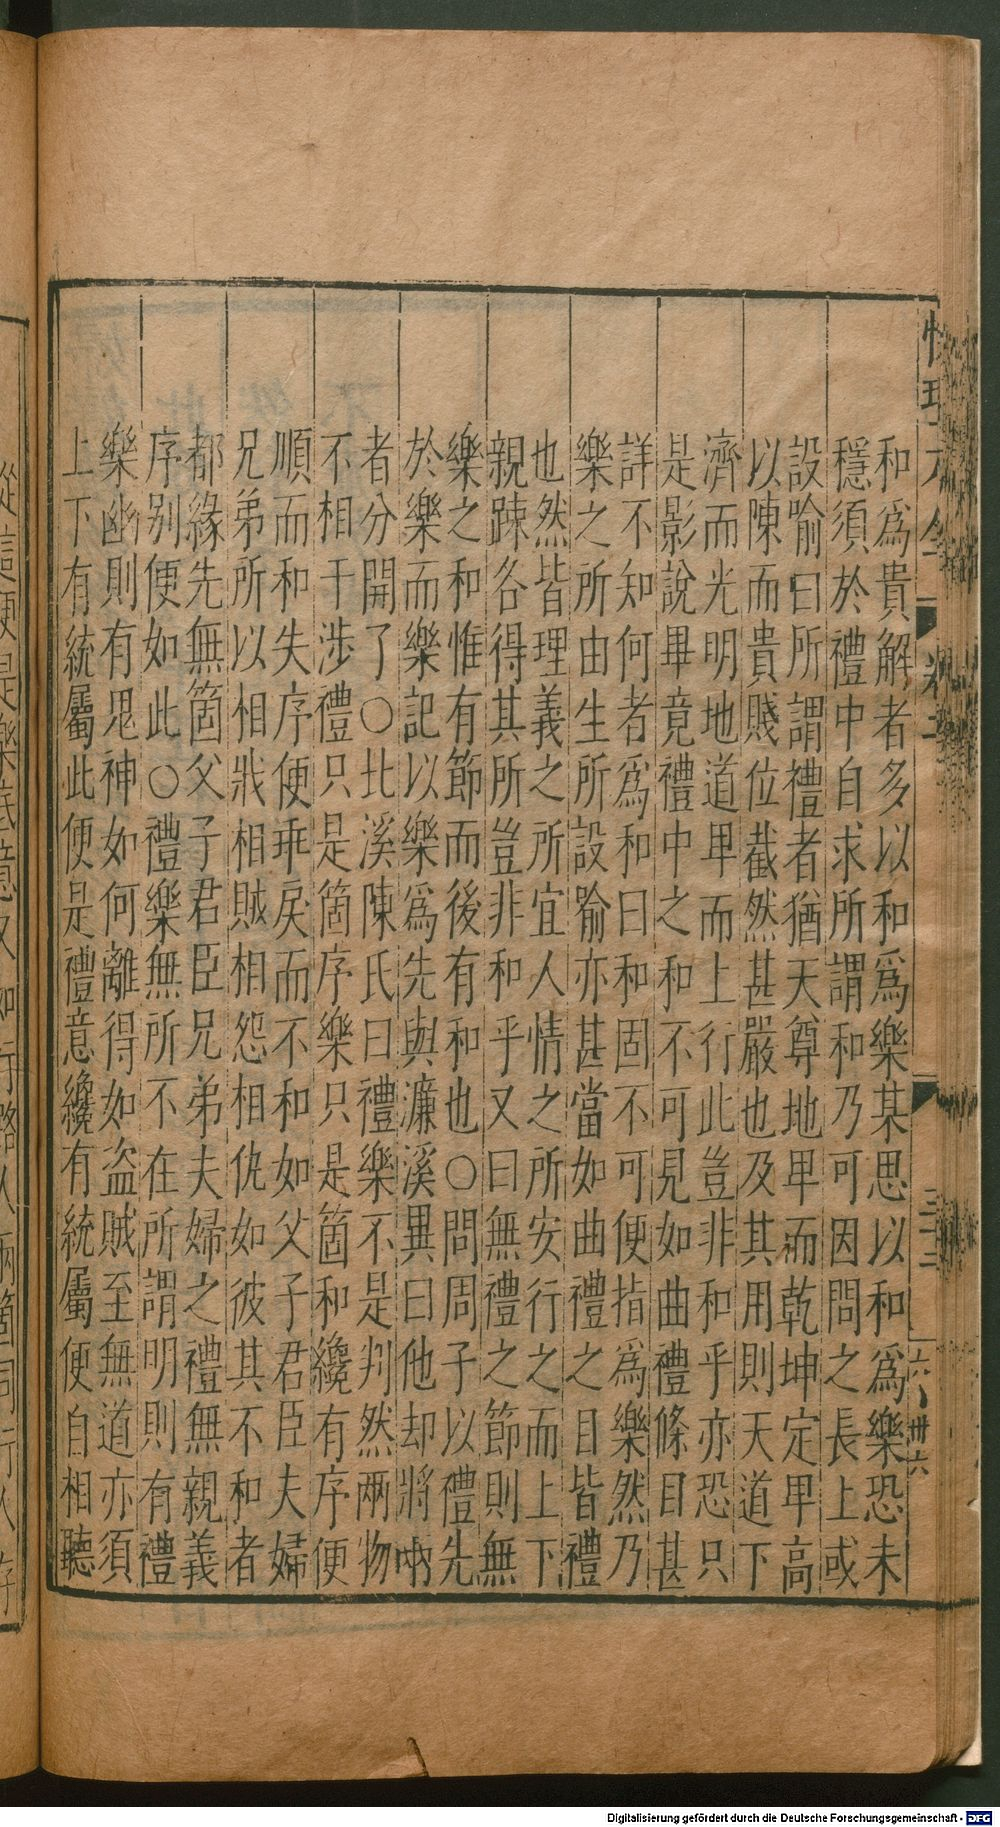 和爲貴解者多以和爲樂某思以和爲樂恐未
穩須於禮中自求所謂和乃可因問之長上或
設喻曰所謂禮者猶天尊地卑而乾坤定卑高
以陳而貴賤位截然甚嚴也及其用則天道下
濟而光明地道卑而上行此豈非和乎亦恐只
是影說畢竟禮中之和不可見如曲禮條目甚
詳不知何者爲和曰和固不可便指爲樂然乃
樂之所由生所設喻亦甚當如曲禮之目皆禮
也然皆理義之所宜人情之所安行之而上下
親踈各得其所豈非和乎又曰無禮之節則無
樂之和惟有節而後有和也○問周子以禮先
於樂而樂記以樂爲先與濂溪異曰他却將兩
者分開了○北溪陳氏曰禮樂不是判然兩物
不相干涉禮只是箇序樂只是箇和纔有序便
順而和失序便乖戾而不和如父子君臣夫婦
兄弟所以相戕相賊相怨相仇如彼其不和者
都緣先無箇父子君臣兄弟夫婦之禮無親義
序别便如此○禮樂無所不在所謂明則有禮
樂幽則有鬼神如何離得如盗賊至無道亦須
上下有統屬此便是禮意纔有統屬便自相聽
Digitalisierung gefördert durch die Deutsche Forschungsgemeinschaft - DFG